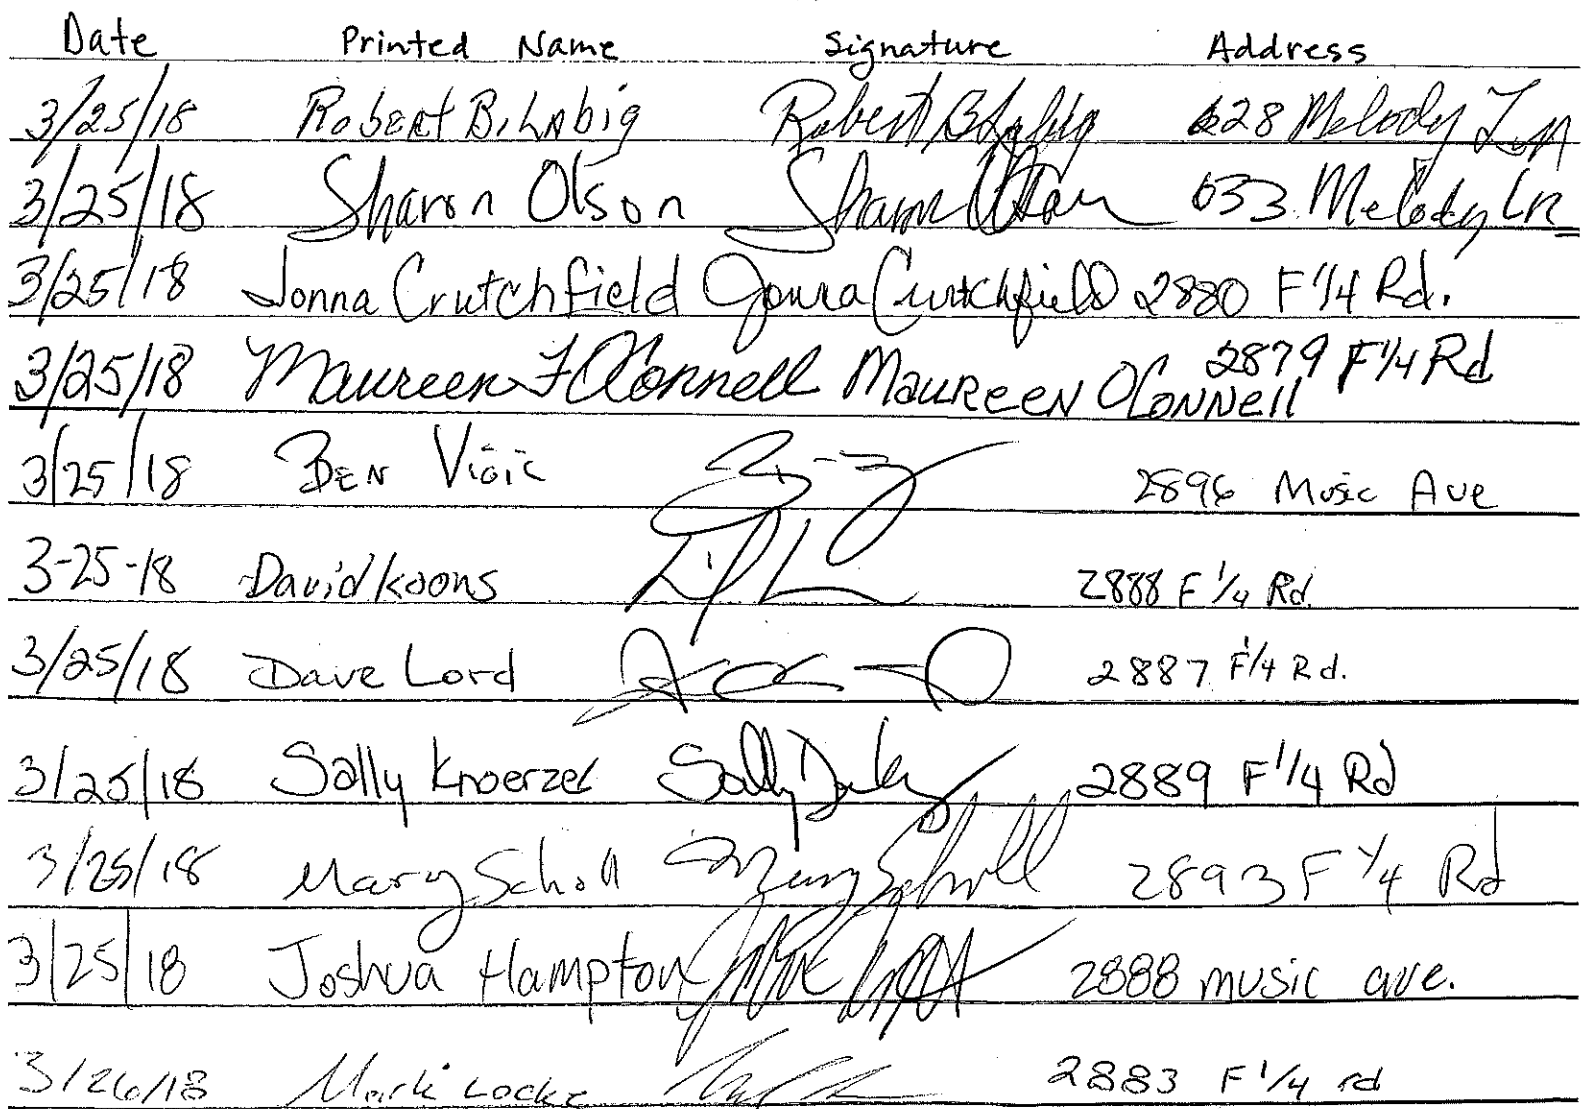 Date Printed Name Signature Address
3/25/18 Robert B. Labig Robert B Labig 628 Melody Ln
3/25/18 Sharon Olson Sharon Olson 633 Melody Ln
3/25/18 Jonna Crutchfield Jonna Crutchfield 2880 F 1/4 Rd.
3/25/18 Maureen F O'Connell Maureen O'Connell 2879 F 1/4 Rd
3/25/18 Ben 2896 Music Ave
3-25-18 David Koons 2888 F 1/4 Rd.
3/25/18 Dave Lord 2887 F 1/4 Rd.
3/25/18 Sally Knoerzer Sally 2889 F 1/4 Rd
3/25/18 Mary Scholl Mary Scholl 2893 F 1/4 Rd
3/25/18 Joshua Hampton 2888 music ave.
3/26/18 Mark Locke 2883 F 1/4 rd